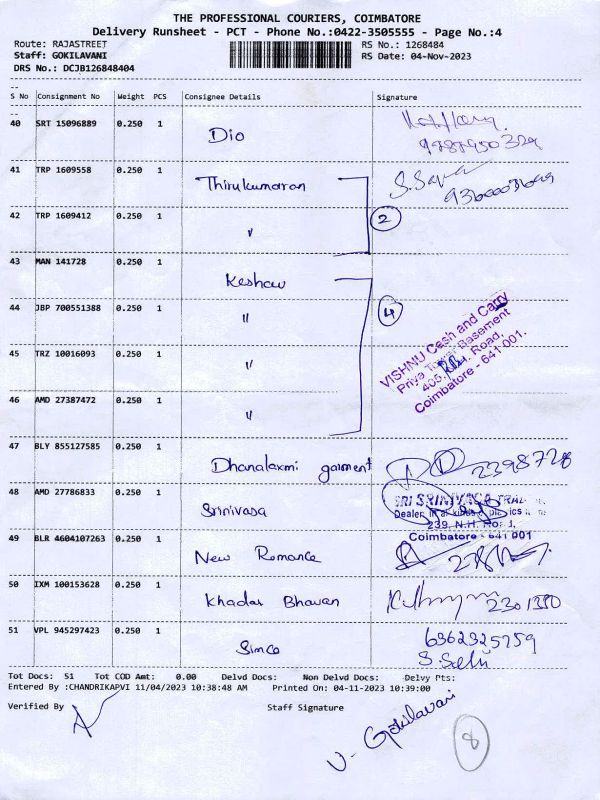 THE PROFESSIONAL COURIERS, COIMBATORE
Delivery Runsheet - PCT - Phone No.:0422-3505555 - Page No.:4
Route: RAJASTREET RS No.: 1268484
Staff: GOKILAVANI RS Date: 04-Nov-2023
DRS No.: DCJB126848404
S No Consignment No Weight PCS Consignee Details Signature
40 SRT 15096889 0.250 1 Dio
41 TRP 1609558 0.250 1 Thirukumaran
42 TRP 1609412 0.250 1 " 2
43 MAN 141728 0.250 1 Keshav
44 JBP 700551388 0.250 1 " 4
45 TRZ 10016093 0.250 1 "
46 AMD 27387472 0.250 1 "
VISHNU Cash and Carry
Priya Basement
405, Road,
Coimbatore - 641 001.
47 BLY 855127585 0.250 1 Dhanalaxmi garment 2398728
48 AMD 27786833 0.250 1 Srinivasa
SRI SRINIVASA
Dealer in
239, N.H. Road,
Coimbatore - 641 001
49 BLR 4604107263 0.250 1 New Romance
50 IXM 100153628 0.250 1 Khadar Bhavan 2301380
51 VPL 945297423 0.250 1 Simco
Tot Docs: 51 Tot COD Amt: 0.00 Delvd Docs: Non Delvd Docs: Delvy Pts:
Entered By :CHANDRIKAPVI 11/04/2023 10:38:48 AM Printed On: 04-11-2023 10:39:00
Verified By Staff Signature
V. Gokilavani
8